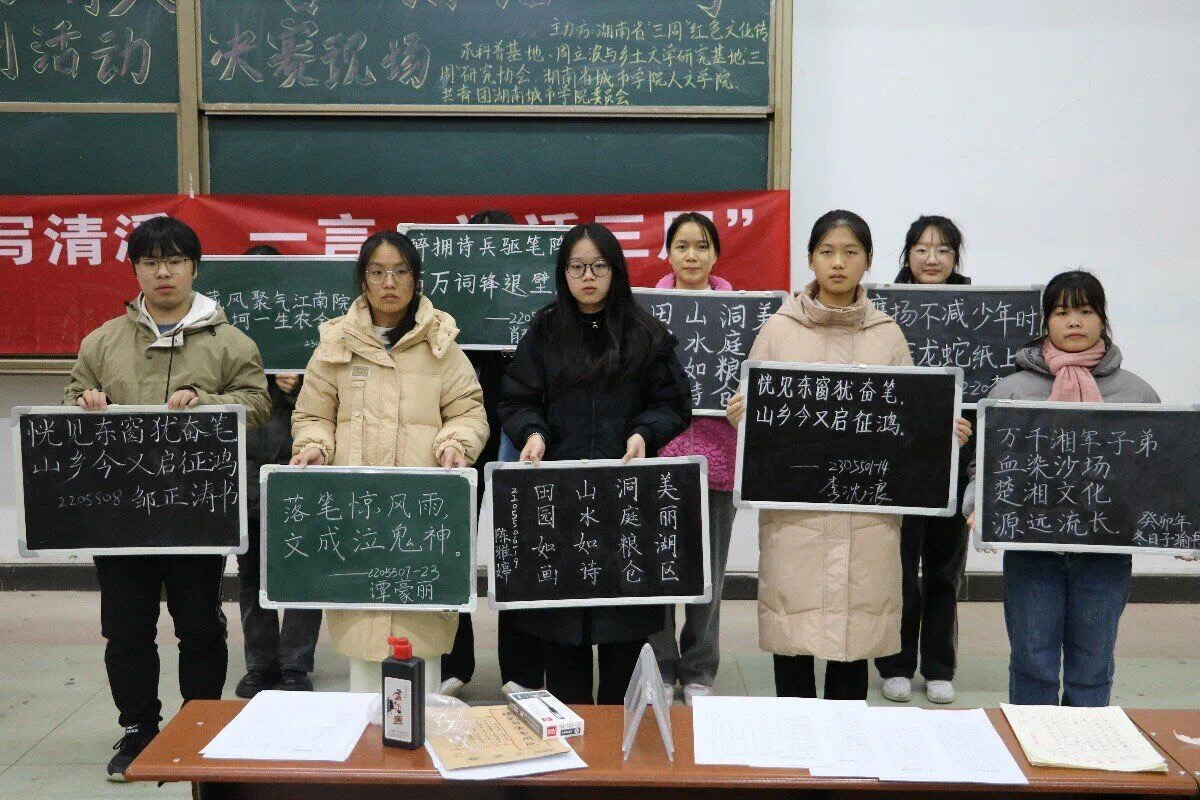 划活动
决赛现场
主力方:湖南省"三周"红色文化传
承科普基地、周立波与乡土文学研究基地"三
周"研究协会、湖南省城市学院人文学院、
共青团湖南城市学院委员会
写清溪 一言 三周"
风聚气江南院
一生农
醉拥诗兵驱笔阵
百万词锋退壁
美
洞庭粮
山水如诗
田
扬不减少年时
龙蛇纸上
恍见东窗犹奋笔
山乡今又启征鸿
2205508 邹正涛书
落笔惊风雨,
文成泣鬼神。
——2205507-23
谭豪丽
美丽湖区
洞庭粮仓
山水如诗
田园如画
陈雅婷
恍见东窗犹奋笔,
山乡今又启征鸿.
——2305501-14
李沈浪
万千湘军子弟
血染沙场
楚湘文化
源远流长
癸卯年
冬日子瑜书